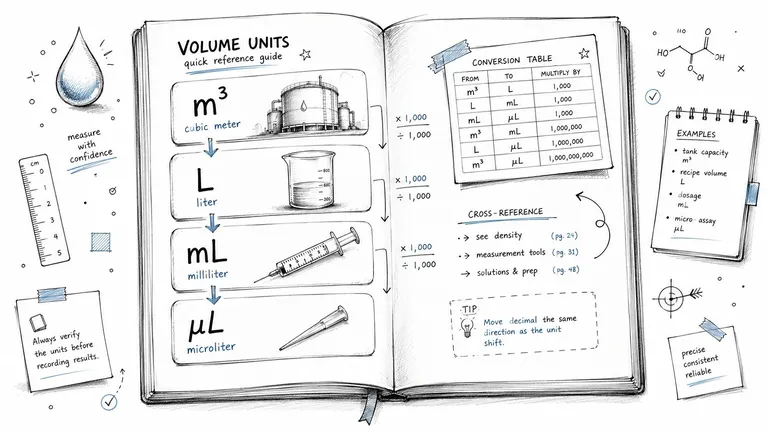 VOLUME UNITS
quick reference guide
m³
cubic meter
L
liter
mL
milliliter
μL
microliter
x 1,000
÷ 1,000
x 1,000
÷ 1,000
x 1,000
÷ 1,000
CONVERSION TABLE
FROM TO MULTIPLY BY
m³ L 1,000
L mL 1,000
mL μL 1,000
m³ mL 1,000,000
L μL 1,000,000
m³ μL 1,000,000,000
CROSS-REFERENCE
see density (pg. 24)
measurement tools (pg. 31)
solutions & prep (pg. 48)
TIP
Move decimal the same
direction as the unit
shift.
measure
with
confidence
cm
0
1
2
3
4
5
Always verify
the units before
recording results.
HO
O
OH
O
EXAMPLES
• tank capacity
m³
• recipe volume
L
• dosage
mL
• micro assay
μL
precise
consistent
reliable